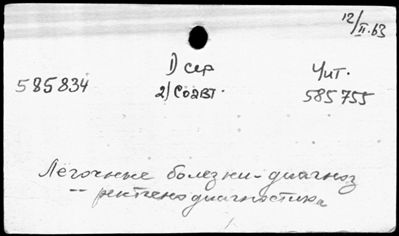 12/II.63
1) сер Чит.
585834 2) Соавт. 585755
Легочные болезни - диагноз
-- рентгенодиагностика